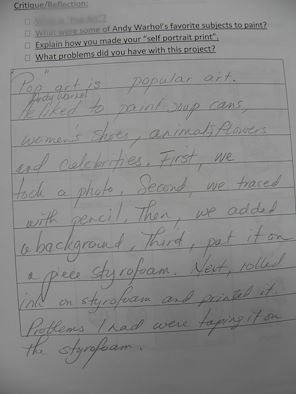 Critique/Reflection:
What is "Pop Art"?
What were some of Andy Warhol's favorite subjects to paint?
Explain how you made your "self portrait print".
What problems did you have with this project?
"Pop art" is popular art.
Andy Warhol
He liked to paint soup cans,
women's shoes, animals, flowers
and celebrities. First, we
took a photo. Second, we traced
with pencil, Then, we added
a background, Third, put it on
a piece styrofoam. Next, rolled
ink on styrofoam and printed it.
Problems I had were taping it on
the styrofoam.